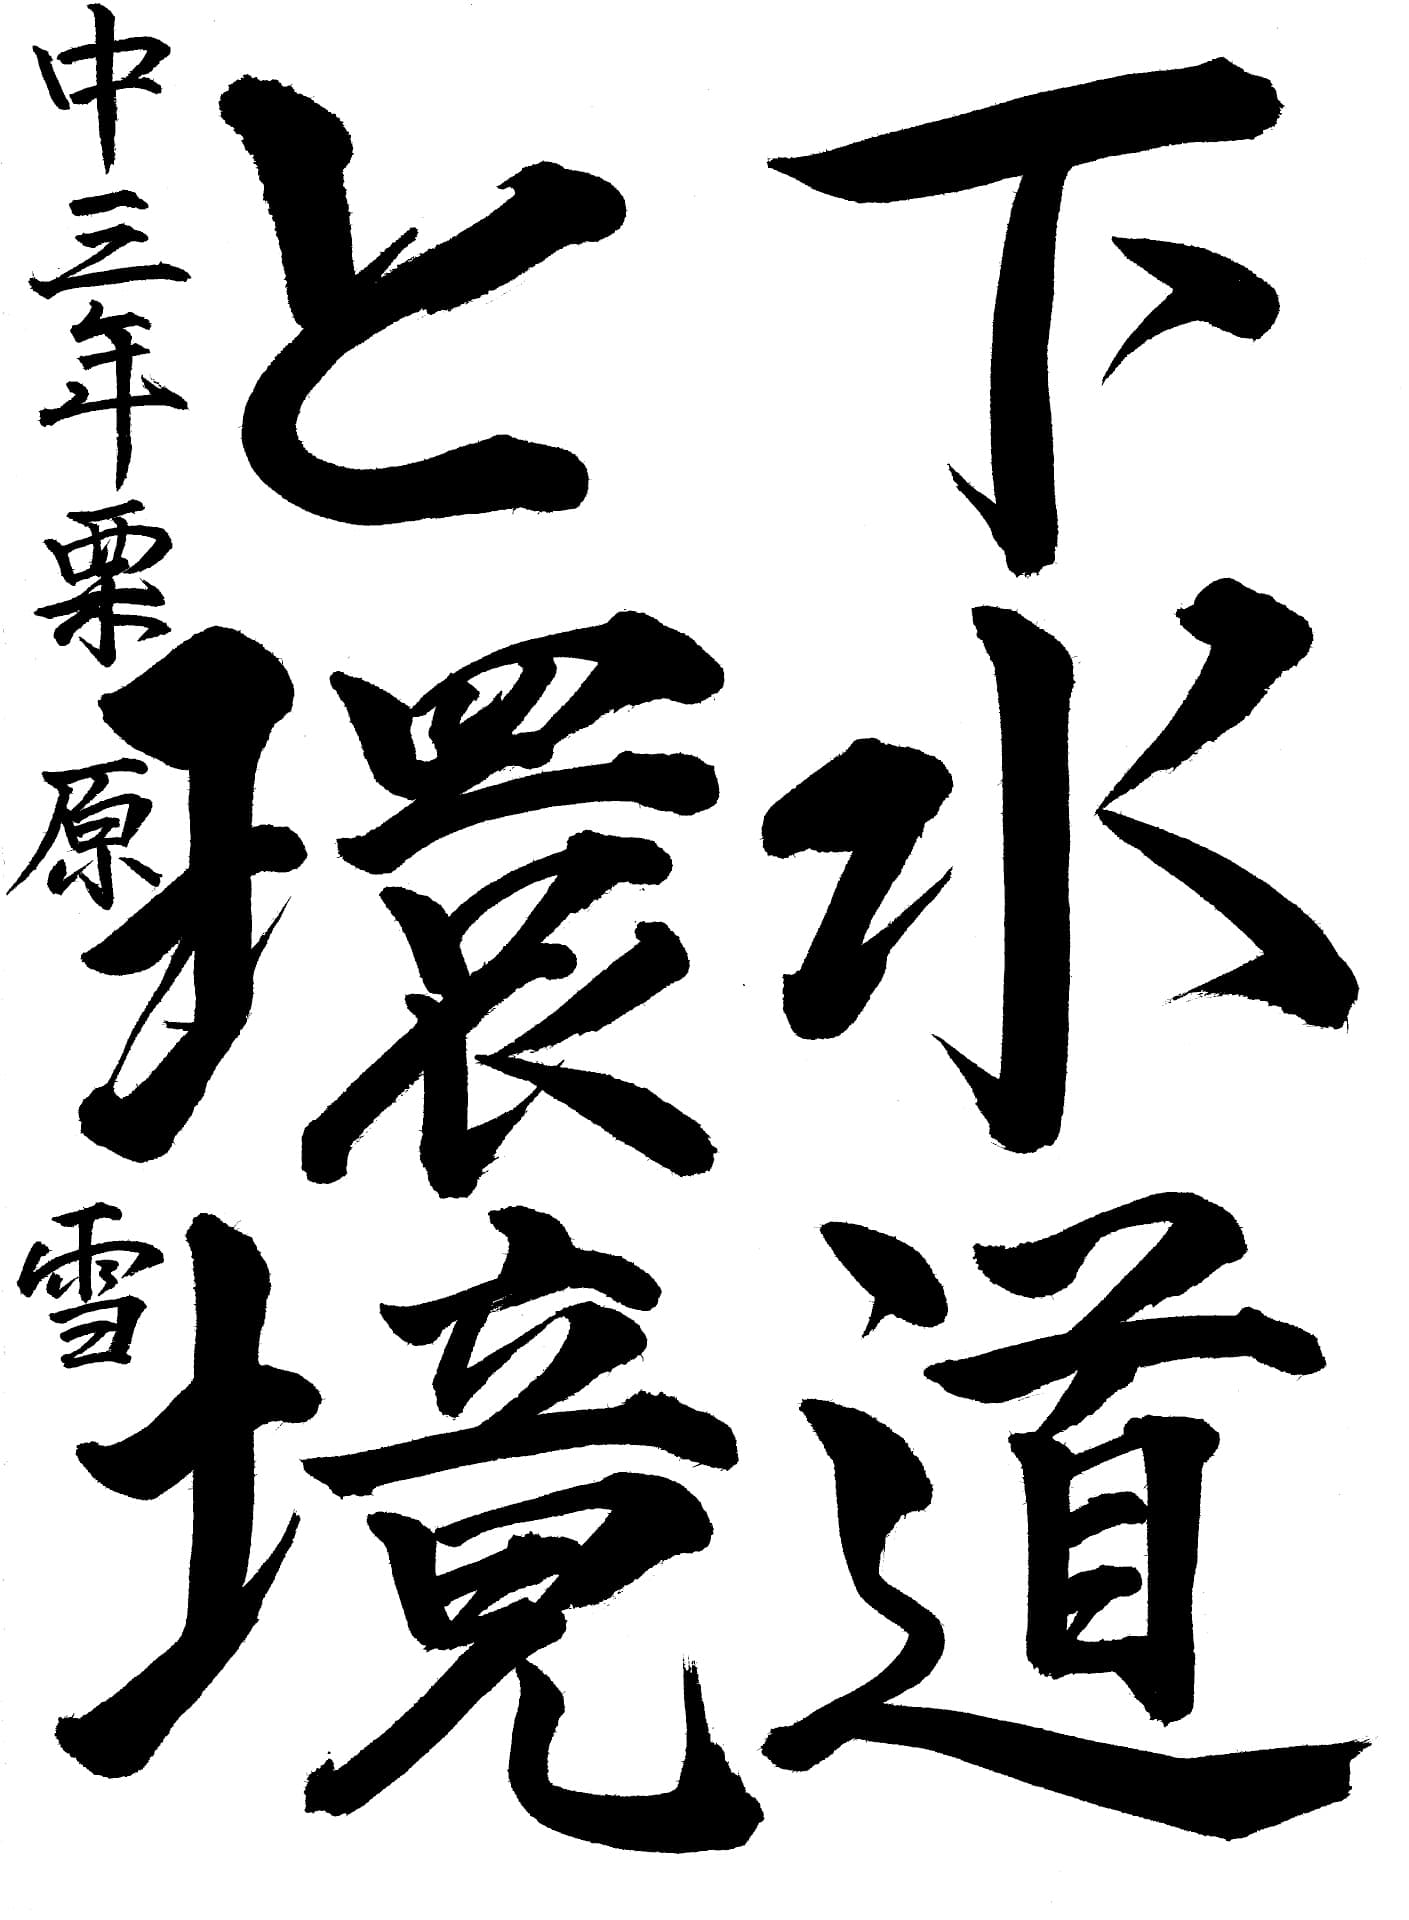 下水道
と環境
中三年栗原雪